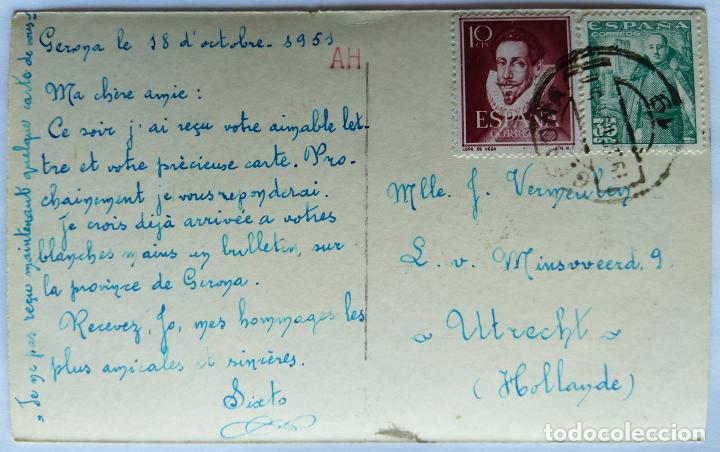 Gerona le 18 d'octobre - 1951
AH
Ma chère amie :
Ce soir j'ai reçu votre aimable let-
tre et votre précieuse carte. Pro-
chainement je vous reponderai.
Je crois déjà arrivée a votres
blanches mains un bulletin, sur
la province de Gerona.
Recevez, Jo, mes hommages les
plus amicales et sincères.
Sixto
Je ne pas reçu maintenant quelque carte de vous
10 CTS
ESPAÑA
CORREOS
LOPE DE VEGA
ESPAÑA
CORREOS
Mlle. J. Vermeulen
L. v. Minsvveerd, 9
Utrecht
(Hollande)
todocoleccion.net